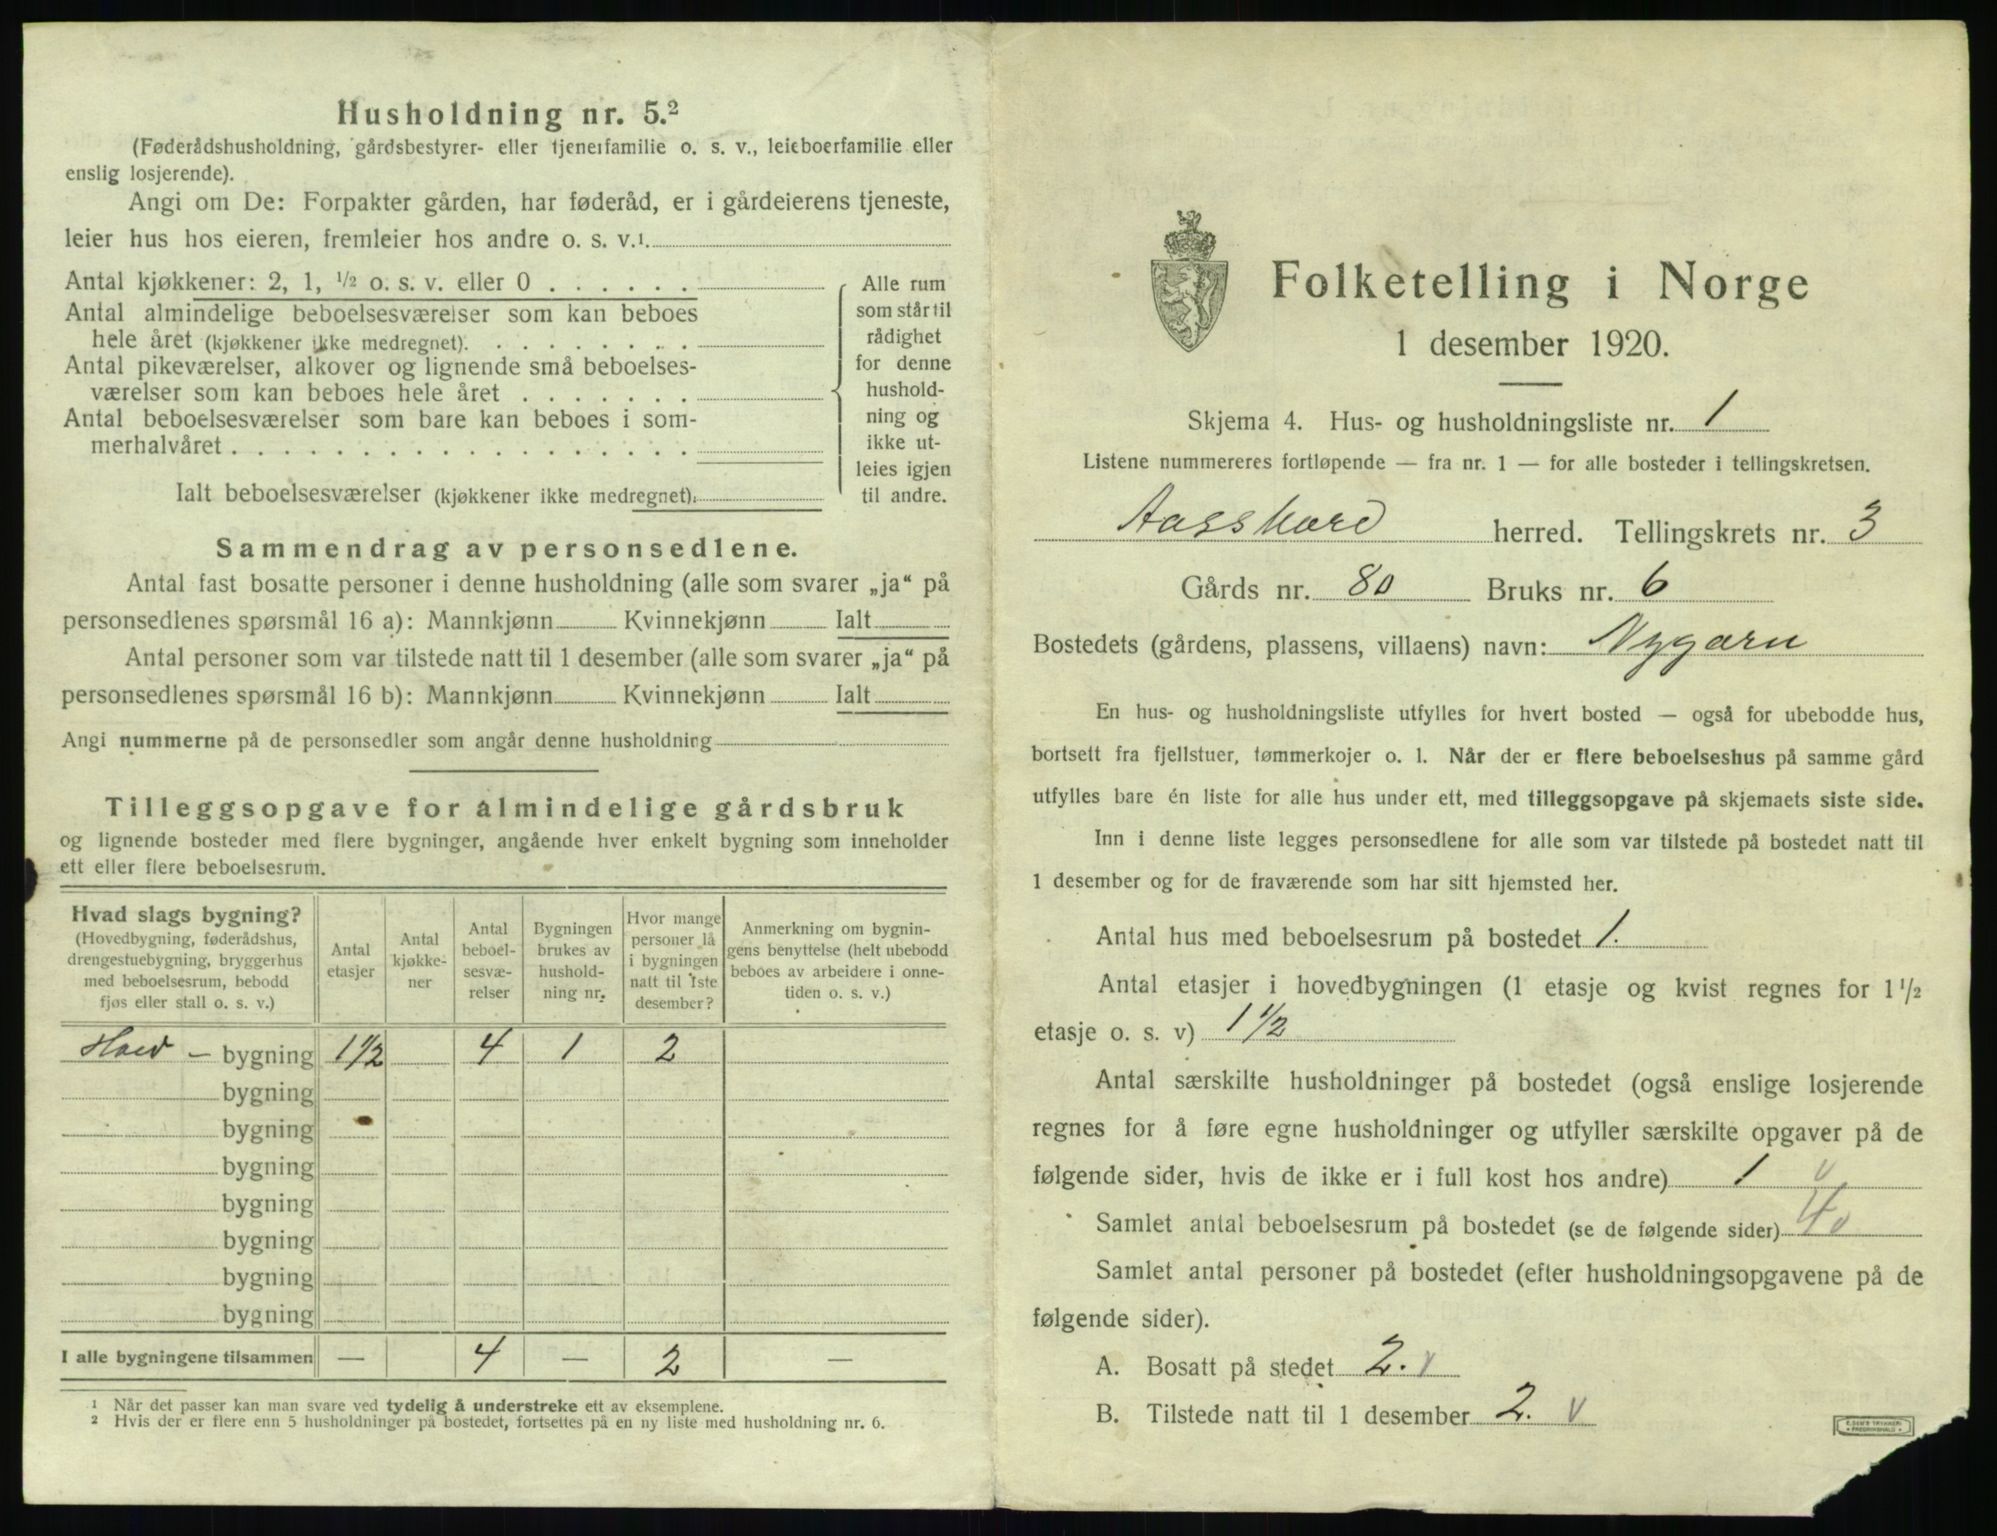 Husholdning nr. 5.²
(Føderådshusholdning, gårdsbestyrer- eller tjenerfamilie o. s. v., leieboerfamilie eller
enslig losjerende).
Angi om De: Forpakter gården, har føderåd, er i gårdeierens tjeneste,
leier hus hos eieren, fremleier hos andre o. s. v.¹
Antal kjøkkener: 2, 1, ½ o. s. v. eller 0 . . . . . .
Antal almindelige beboelsesværelser som kan beboes
hele året (kjøkkener ikke medregnet). . . . . . . . .
Antal pikeværelser, alkover og lignende små beboelses-
værelser som kan beboes hele året . . . . . . .
Antal beboelsesværelser som bare kan beboes i som-
merhalvåret . . . . . . . . . . . . . . . . . .
Ialt beboelsesværelser (kjøkkener ikke medregnet).
Alle rum
som står til
rådighet
for denne
hushold-
ning og
ikke ut-
leies igjen
til andre.
Sammendrag av personsedlene.
Antal fast bosatte personer i denne husholdning (alle som svarer „ja“ på
personsedlenes spørsmål 16 a): Mannkjønn Kvinnekjønn Ialt
Antal personer som var tilstede natt til 1 desember (alle som svarer „ja“ på
personsedlenes spørsmål 16 b): Mannkjønn Kvinnekjønn Ialt
Angi nummerne på de personsedler som angår denne husholdning
Tilleggsopgave for almindelige gårdsbruk
og lignende bosteder med flere bygninger, angående hver enkelt bygning som inneholder
ett eller flere beboelsesrum.
Hvad slags bygning?
(Hovedbygning, føderådshus,
drengestuebygning, bryggerhus
med beboelsesrum, bebodd
fjøs eller stall o. s. v.)
Antal
etasjer
Antal
kjøkke-
ner
Antal
beboel-
sesvæ-
relser
Bygningen
brukes av
hushold-
ning nr.
Hvor mange
personer lå
i bygningen
natt til 1ste
desember?
Anmerkning om bygnin-
gens benyttelse (helt ubebodd
beboes av arbeidere i onne-
tiden o. s. v.)
Hoved - bygning 1 1/2 4 1 2
bygning
bygning
bygning
bygning
bygning
bygning
bygning
I alle bygningene tilsammen — 4 — 2 —
¹ Når det passer kan man svare ved tydelig å understreke ett av eksemplene.
² Hvis der er flere enn 5 husholdninger på bostedet, fortsettes på en ny liste med husholdning nr. 6.
Folketelling i Norge
1 desember 1920.
Skjema 4. Hus- og husholdningsliste nr. 1
Listene nummereres fortløpende — fra nr. 1 — for alle bosteder i tellingskretsen.
Aasskard herred. Tellingskrets nr. 3
Gårds nr. 80 Bruks nr. 6
Bostedets (gårdens, plassens, villaens) navn: Nygaru
En hus- og husholdningsliste utfylles for hvert bosted — også for ubebodde hus,
bortsett fra fjellstuer, tømmerkojer o. l. Når der er flere beboelseshus på samme gård
utfylles bare én liste for alle hus under ett, med tilleggsopgave på skjemaets siste side.
Inn i denne liste legges personsedlene for alle som var tilstede på bostedet natt til
1 desember og for de fraværende som har sitt hjemsted her.
Antal hus med beboelsesrum på bostedet 1.
Antal etasjer i hovedbygningen (1 etasje og kvist regnes for 1 ½
etasje o. s. v) 1 1/2
Antal særskilte husholdninger på bostedet (også enslige losjerende
regnes for å føre egne husholdninger og utfyller særskilte opgaver på de
følgende sider, hvis de ikke er i full kost hos andre) 1 v
Samlet antal beboelsesrum på bostedet (se de følgende sider) 4 v
Samlet antal personer på bostedet (efter husholdningsopgavene på de
følgende sider).
A. Bosatt på stedet 2. v
B. Tilstede natt til 1 desember 2. v
E. SEM'S TRYKKERI
• FREDRIKSHALD •